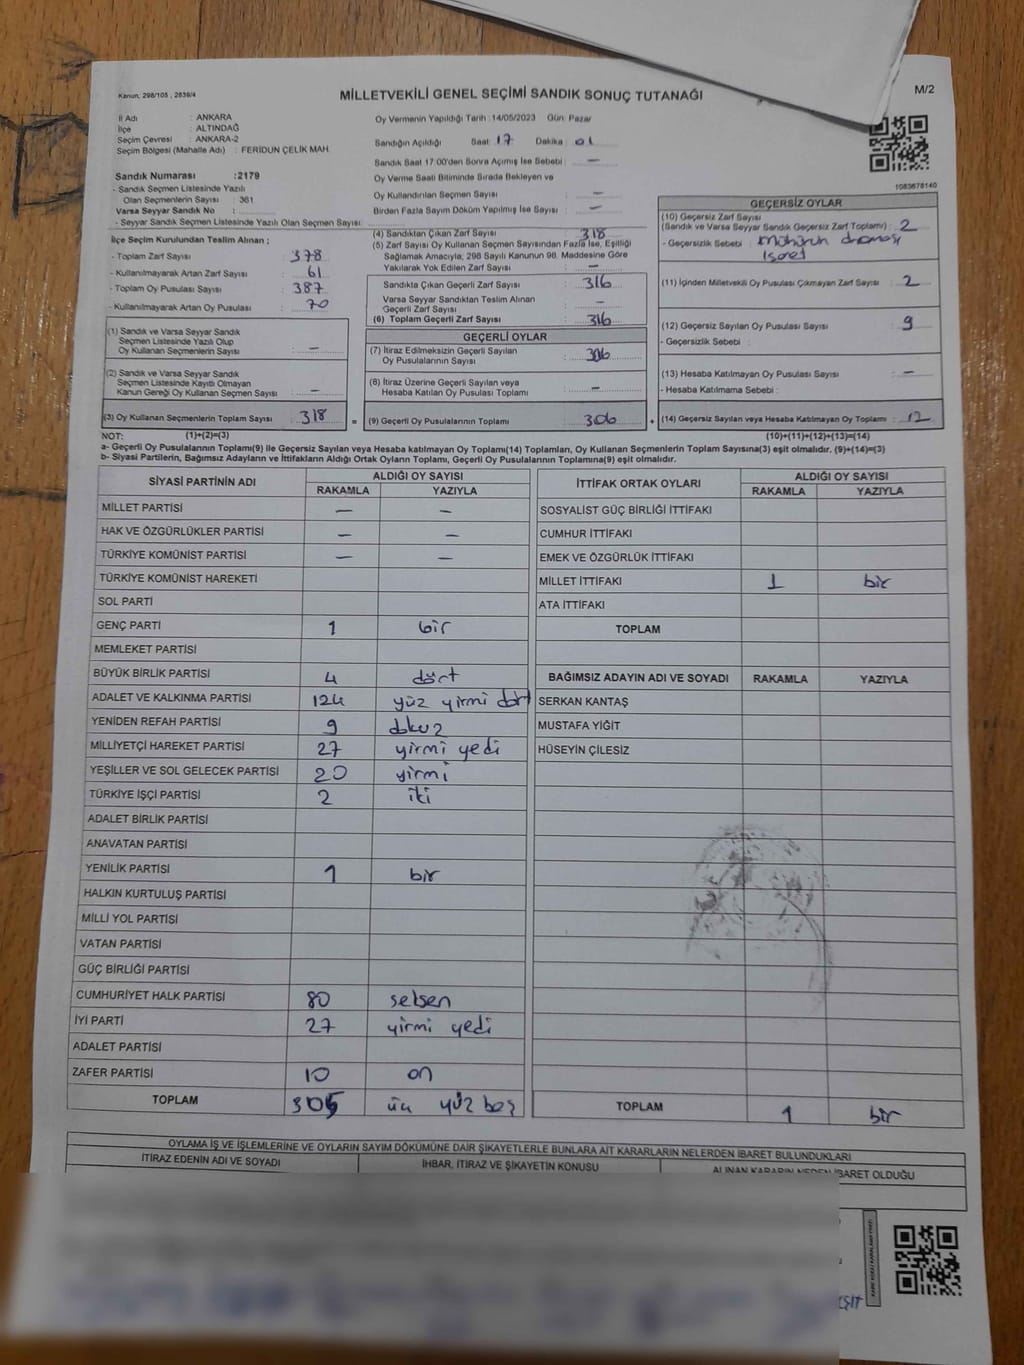 Kanun, 298/105 , 2839/4
MİLLETVEKİLİ GENEL SEÇİMİ SANDIK SONUÇ TUTANAĞI
M/2
İl Adı : ANKARA
İlçe : ALTINDAĞ
Seçim Çevresi : ANKARA-2
Seçim Bölgesi (Mahalle Adı) : FERİDUN ÇELİK MAH.
Sandık Numarası :2179
- Sandık Seçmen Listesinde Yazılı
Olan Seçmenlerin Sayısı : 361
Varsa Seyyar Sandık No :
- Seyyar Sandık Seçmen Listesinde Yazılı Olan Seçmen Sayısı:
İlçe Seçim Kurulundan Teslim Alınan ;
- Toplam Zarf Sayısı : 378
- Kullanılmayarak Artan Zarf Sayısı : 61
- Toplam Oy Pusulası Sayısı : 387
- Kullanılmayarak Artan Oy Pusulası : 70
(1) Sandık ve Varsa Seyyar Sandık
Seçmen Listesinde Yazılı Olup
Oy Kullanan Seçmenlerin Sayısı : —
(2) Sandık ve Varsa Seyyar Sandık
Seçmen Listesinde Kayıtlı Olmayan
Kanun Gereği Oy Kullanan Seçmen Sayısı : —
(3) Oy Kullanan Seçmenlerin Toplam Sayısı : 318
Oy Vermenin Yapıldığı Tarih :14/05/2023 Gün: Pazar
Sandığın Açıldığı Saat : 17 Dakika : 01
Sandık Saat 17:00'den Sonra Açılmış İse Sebebi : —
Oy Verme Saati Bitiminde Sırada Bekleyen ve
Oy Kullandırılan Seçmen Sayısı : —
Birden Fazla Sayım Döküm Yapılmış İse Sayısı : —
(4) Sandıktan Çıkan Zarf Sayısı : 318
(5) Zarf Sayısı Oy Kullanan Seçmen Sayısından Fazla İse, Eşitliği
Sağlamak Amacıyla, 298 Sayılı Kanunun 98. Maddesine Göre
Yakılarak Yok Edilen Zarf Sayısı : —
Sandıkta Çıkan Geçerli Zarf Sayısı : 316
Varsa Seyyar Sandıktan Teslim Alınan
Geçerli Zarf Sayısı : —
(6) Toplam Geçerli Zarf Sayısı : 316
GEÇERLİ OYLAR
(7) İtiraz Edilmeksizin Geçerli Sayılan
Oy Pusulalarının Sayısı : 306
(8) İtiraz Üzerine Geçerli Sayılan veya
Hesaba Katılan Oy Pusulası Toplamı : —
= (9) Geçerli Oy Pusulalarının Toplamı : 306 +
1083678140
GEÇERSİZ OYLAR
(10) Geçersiz Zarf Sayısı
(Sandık ve Varsa Seyyar Sandık Geçersiz Zarf Toplamı) : 2
- Geçersizlik Sebebi : Mühürün
işaret
(11) İçinden Milletvekili Oy Pusulası Çıkmayan Zarf Sayısı : 2
(12) Geçersiz Sayılan Oy Pusulası Sayısı : 9
- Geçersizlik Sebebi :
(13) Hesaba Katılmayan Oy Pusulası Sayısı : —
- Hesaba Katılmama Sebebi :
(14) Geçersiz Sayılan veya Hesaba Katılmayan Oy Toplamı : 12
NOT: (1)+(2)=(3) (10)+(11)+(12)+(13)=(14)
a- Geçerli Oy Pusulalarının Toplamı(9) ile Geçersiz Sayılan veya Hesaba katılmayan Oy Toplamı(14) Toplamları, Oy Kullanan Seçmenlerin Toplam Sayısına(3) eşit olmalıdır. (9)+(14)=(3)
b- Siyasi Partilerin, Bağımsız Adayların ve İttifakların Aldığı Ortak Oyların Toplamı, Geçerli Oy Pusulalarının Toplamına(9) eşit olmalıdır.
SİYASİ PARTİNİN ADI ALDIĞI OY SAYISI
RAKAMLA YAZIYLA
MİLLET PARTİSİ — —
HAK VE ÖZGÜRLÜKLER PARTİSİ — —
TÜRKİYE KOMÜNİST PARTİSİ — —
TÜRKİYE KOMÜNİST HAREKETİ
SOL PARTİ
GENÇ PARTİ 1 bir
MEMLEKET PARTİSİ
BÜYÜK BİRLİK PARTİSİ 4 dört
ADALET VE KALKINMA PARTİSİ 124 yüz yirmi dört
YENİDEN REFAH PARTİSİ 9 dokuz
MİLLİYETÇİ HAREKET PARTİSİ 27 yirmi yedi
YEŞİLLER VE SOL GELECEK PARTİSİ 20 yirmi
TÜRKİYE İŞÇİ PARTİSİ 2 iki
ADALET BİRLİK PARTİSİ
ANAVATAN PARTİSİ
YENİLİK PARTİSİ 1 bir
HALKIN KURTULUŞ PARTİSİ
MİLLİ YOL PARTİSİ
VATAN PARTİSİ
GÜÇ BİRLİĞİ PARTİSİ
CUMHURİYET HALK PARTİSİ 80 seksen
İYİ PARTİ 27 yirmi yedi
ADALET PARTİSİ
ZAFER PARTİSİ 10 on
TOPLAM 305 üç yüz beş
İTTİFAK ORTAK OYLARI ALDIĞI OY SAYISI
RAKAMLA YAZIYLA
SOSYALİST GÜÇ BİRLİĞİ İTTİFAKI
CUMHUR İTTİFAKI
EMEK VE ÖZGÜRLÜK İTTİFAKI
MİLLET İTTİFAKI 1 bir
ATA İTTİFAKI
TOPLAM
BAĞIMSIZ ADAYIN ADI VE SOYADI RAKAMLA YAZIYLA
SERKAN KANTAŞ
MUSTAFA YİĞİT
HÜSEYİN ÇİLESİZ
TOPLAM 1 bir
OYLAMA İŞ VE İŞLEMLERİNE VE OYLARIN SAYIM DÖKÜMÜNE DAİR ŞİKAYETLERLE BUNLARA AİT KARARLARIN NELERDEN İBARET BULUNDUKLARI
İTİRAZ EDENİN ADI VE SOYADI İHBAR, İTİRAZ VE ŞİKAYETİN KONUSU ALINAN KARARIN NEDEN İBARET OLDUĞU